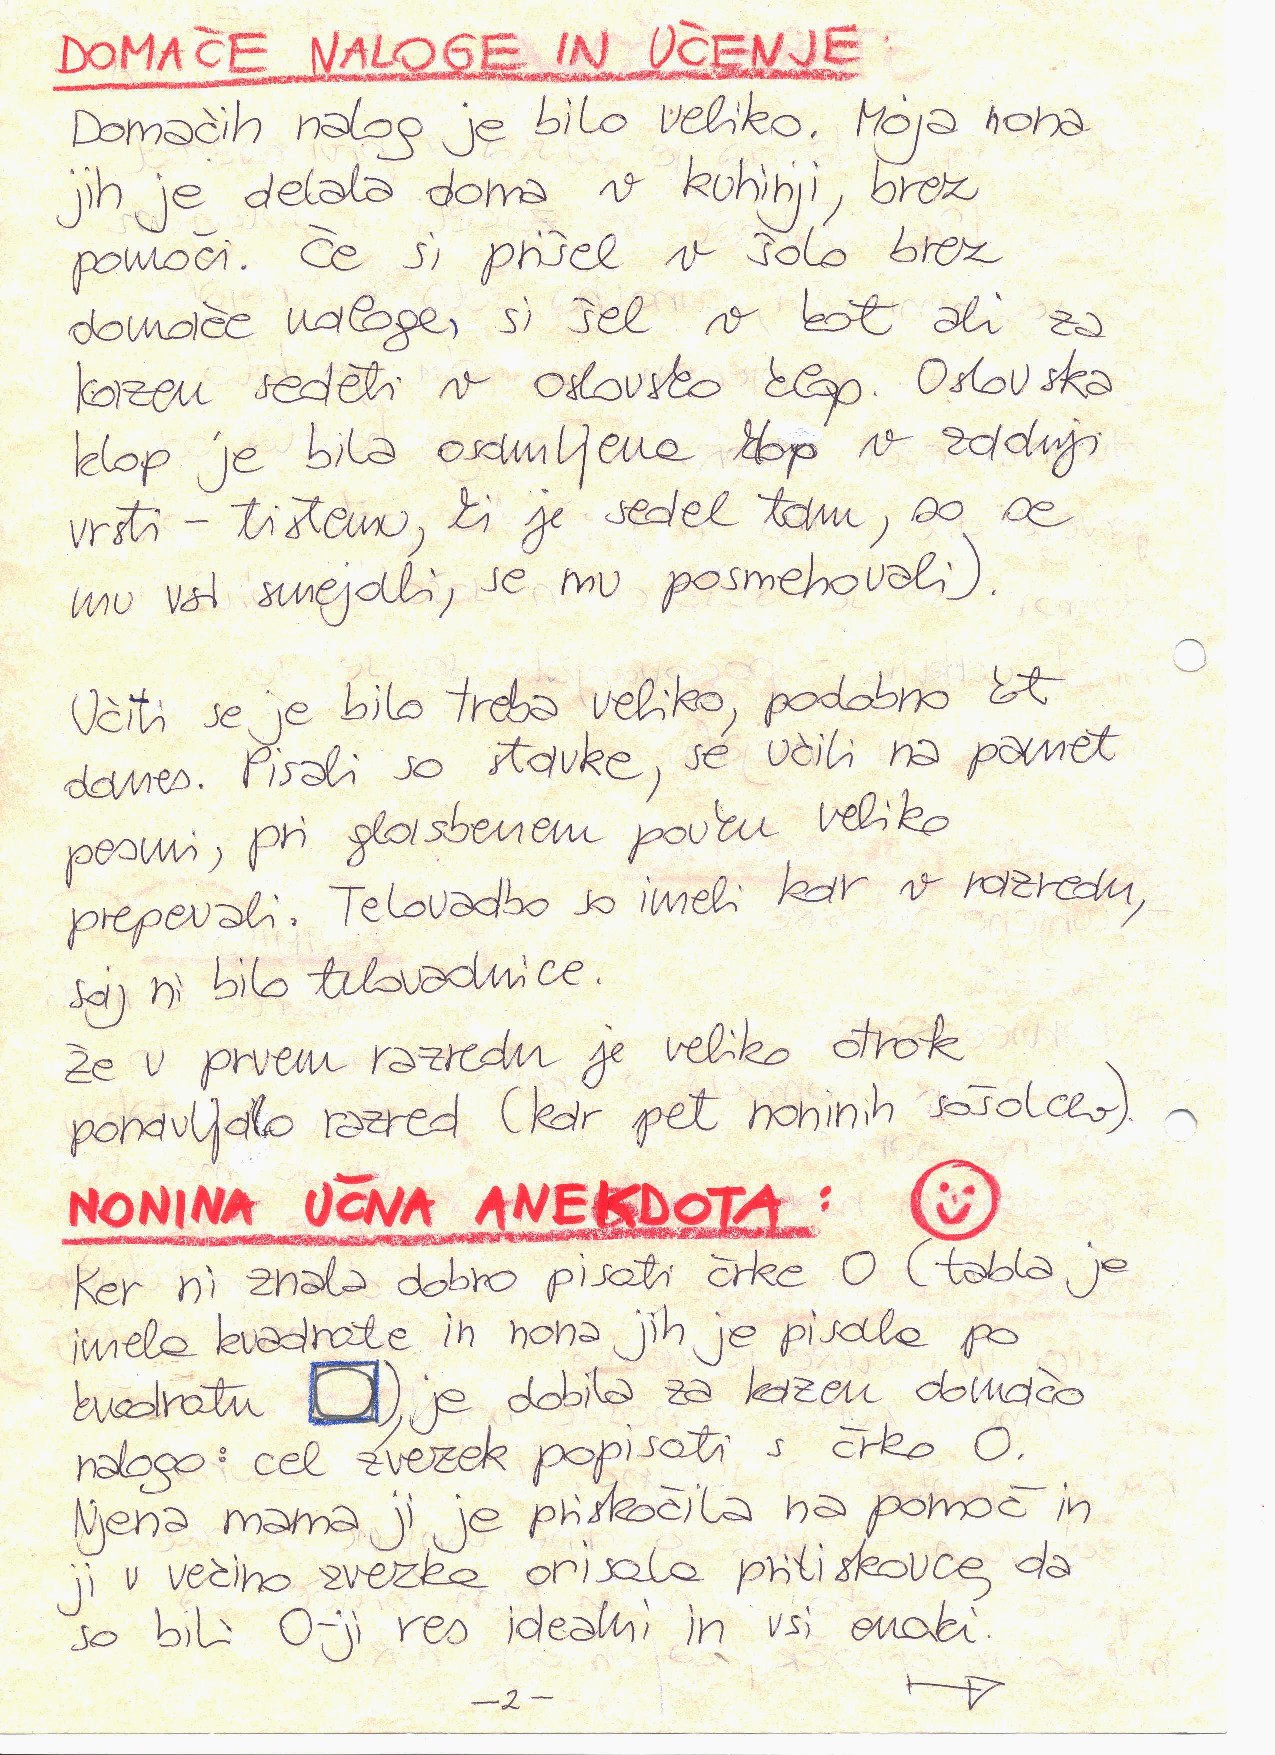 DOMAČE NALOGE IN UČENJE:
Domačih nalog je bilo veliko. Moja nona
jih je delala doma v kuhinji, brez
pomoči. Če si prišel v šolo brez
domače naloge, si šel v kot ali za
kazen sedeti v oslovsko klop. Oslovska
klop je bila osamljena klop v zadnji
vrsti - tistemu, ki je sedel tam, so se
mu vsi smejali, se mu posmehovali).
Učiti se je bilo treba veliko, podobno kot
danes. Pisali so stavke, se učili na pamet
pesmi, pri glasbenem pouku veliko
prepevali. Telovadbo so imeli kar v razredu,
saj ni bilo telovadnice.
Že v prvem razredu je veliko otrok
ponavljalo razred (kar pet noninih sošolcev).
NONINA UČNA ANEKDOTA:
Ker ni znala dobro pisati črke O (tabla je
imela kvadrate in nona jih je pisala po
kvadratu), je dobila za kazen domačo
nalogo: cel zvezek popisati s črko O.
Njena mama ji je priskočila na pomoč in
ji v večino zvezka orisala pritiskovce, da
so bili O-ji res idealni in vsi enaki.
-2-